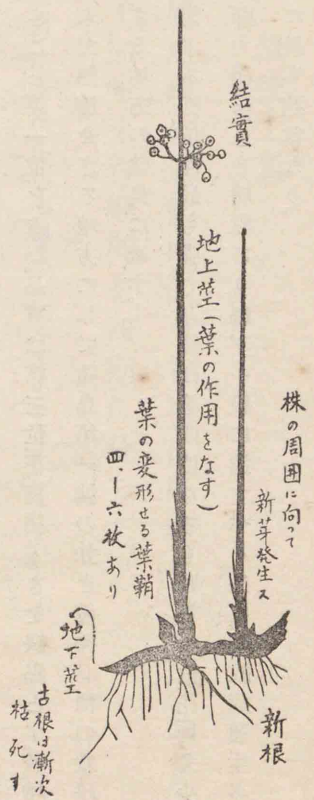 結實
地上莖(葉の作用をなす)
株の周囲に向って
新芽発生ス
葉の変形せる葉鞘
四、ー六枚あり
地下莖
新根
古根は漸次
枯死す